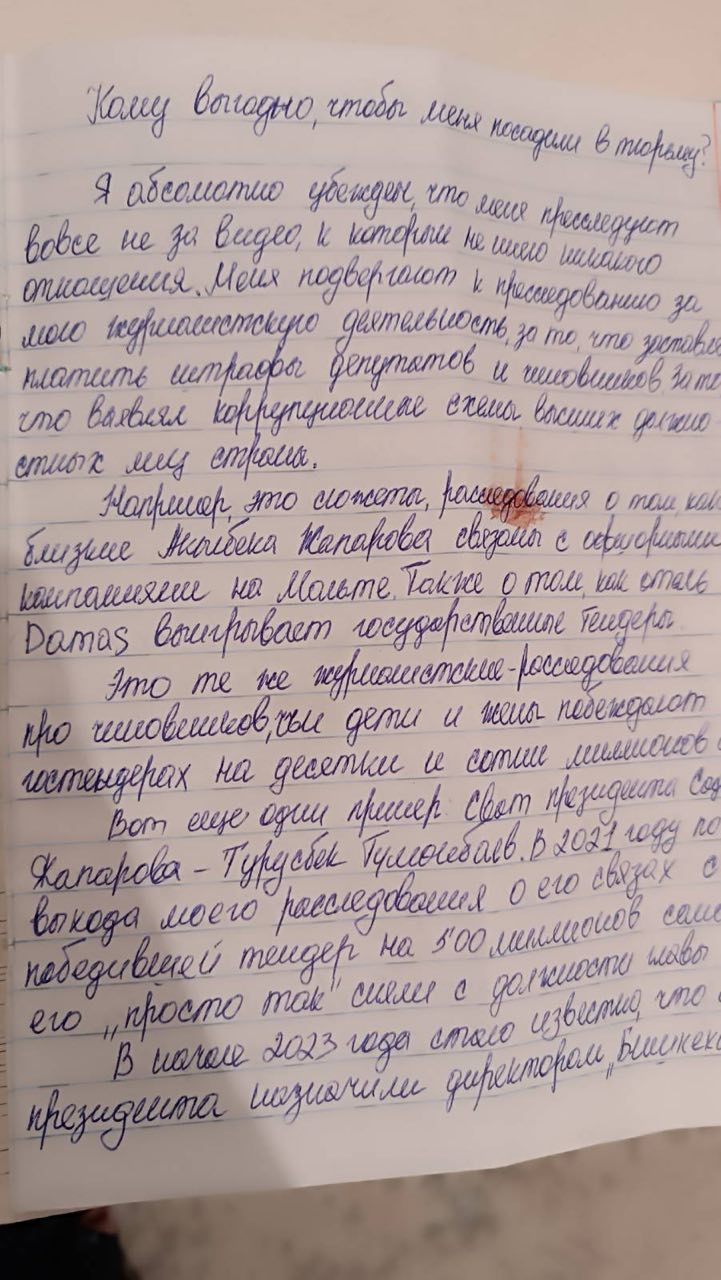 Кому выгодно, чтобы меня посадили в тюрьму?
Я абсолютно убежден, что меня преследуют
вовсе не за видео, к которым не имею никакого
отношения. Меня подвергают к преследованию за
мою журналистскую деятельность, за то, что заставлял
платить штрафы депутатов и чиновников, за то
что выявлял коррупционные схемы высших должно-
стных лиц страны.
Например, это сюжеты, расследования о том, как
близкие Акылбека Жапарова связаны с офшорными
компаниями на Мальте. Также о том, как отель
Damas выигрывает государственные тендеры.
Это те же журналистские-расследования
про чиновников, чьи дети и жены побеждают
гостендерах на десятки и сотни миллионов
Вот еще один пример. Сват президента Сад
Жапарова - Турусбек Тумонбаев. В 2021 году по
выхода моего расследования о его связах с
победившей тендер на 500 миллионов сом
его „просто так" сняли с должности главы
В начале 2023 года стало известно, что
президента назначили директором „Бишкек